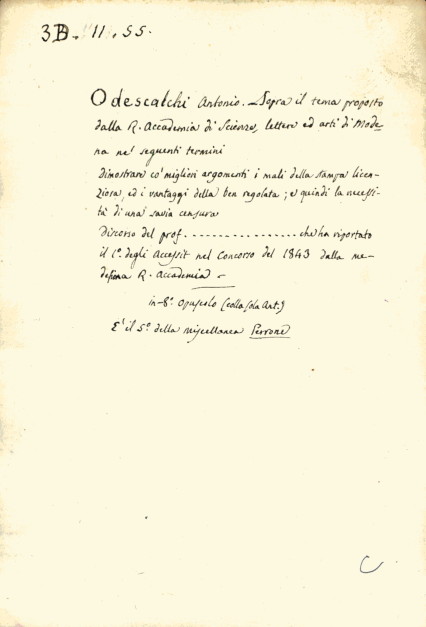 3B. 11. 55.
Odescalchi Antonio. Sopra il tema proposto
dalla R. Accademia di Scienze, lettere ed arti di Mode-
na ne' seguenti termini
Dimostrare co' migliori argomenti i mali della stampa licen-
ziosa, ed i vantaggi della ben regolata; e quindi la necessi-
tà di una savia censura
Discorso del prof. ................ che ha riportato
il 1º degli Accessit nel Concorso del 1843 dalla me-
desima R. Accademia -
in-8º opuscolo (colla sola Ant.)
E' il 5º della miscellanea Perrone
C